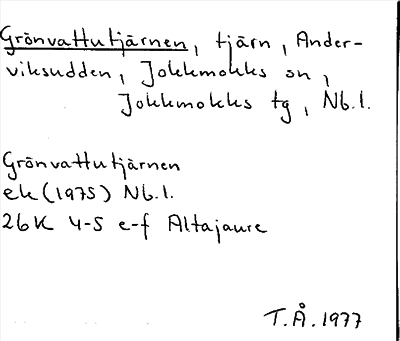 Grönvattutjärnen, tjärn, Ander-
viksudden, Jokkmokks sn,
Jokkmokks tg, Nb.l.
Grönvattutjärnen
ek (1975) Nb.l.
26K 4-5 e-f Altajaure
T.Å. 1977